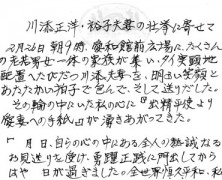 川添正洋・裕子夫妻の壮挙に寄せて
2月26日朝9時、優和館前広場に、たくさん
の老若男女一体の家族が集い、タイ実顕地
配置へたびだつ川添夫妻を、明るい笑顔と
あたたかい拍手で包んで、そして送りだした。
その輪の中にいた私の心に『出精平使より
愛妻への手紙』が湧きあがってきた。
「 月 日、自らの心の中にある全人の熱誠なる
お見送りを受け、勇躍正践に門出してから
はや 日が過ぎました。全世界恒久平和、私